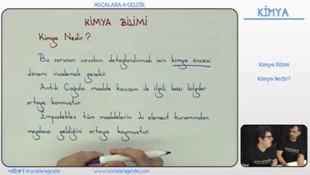 HOCALARA GELDİK
KİMYA BİLİMİ
Kimya Nedir?
Bu sorunun cevabını detaylandırmak için kimya öncesi
dönemi incelemek gerekir.
Antik Çağda madde kavramı ile ilgili bazı bilgiler
ortaya konmuştur.
Empedokles tüm maddelerin dört element kuramından
meydana geldiğini ortaya koymuştur.
KİMYA
Kimya Bilimi
Kimya Nedir?
www.hocalarageldik.com